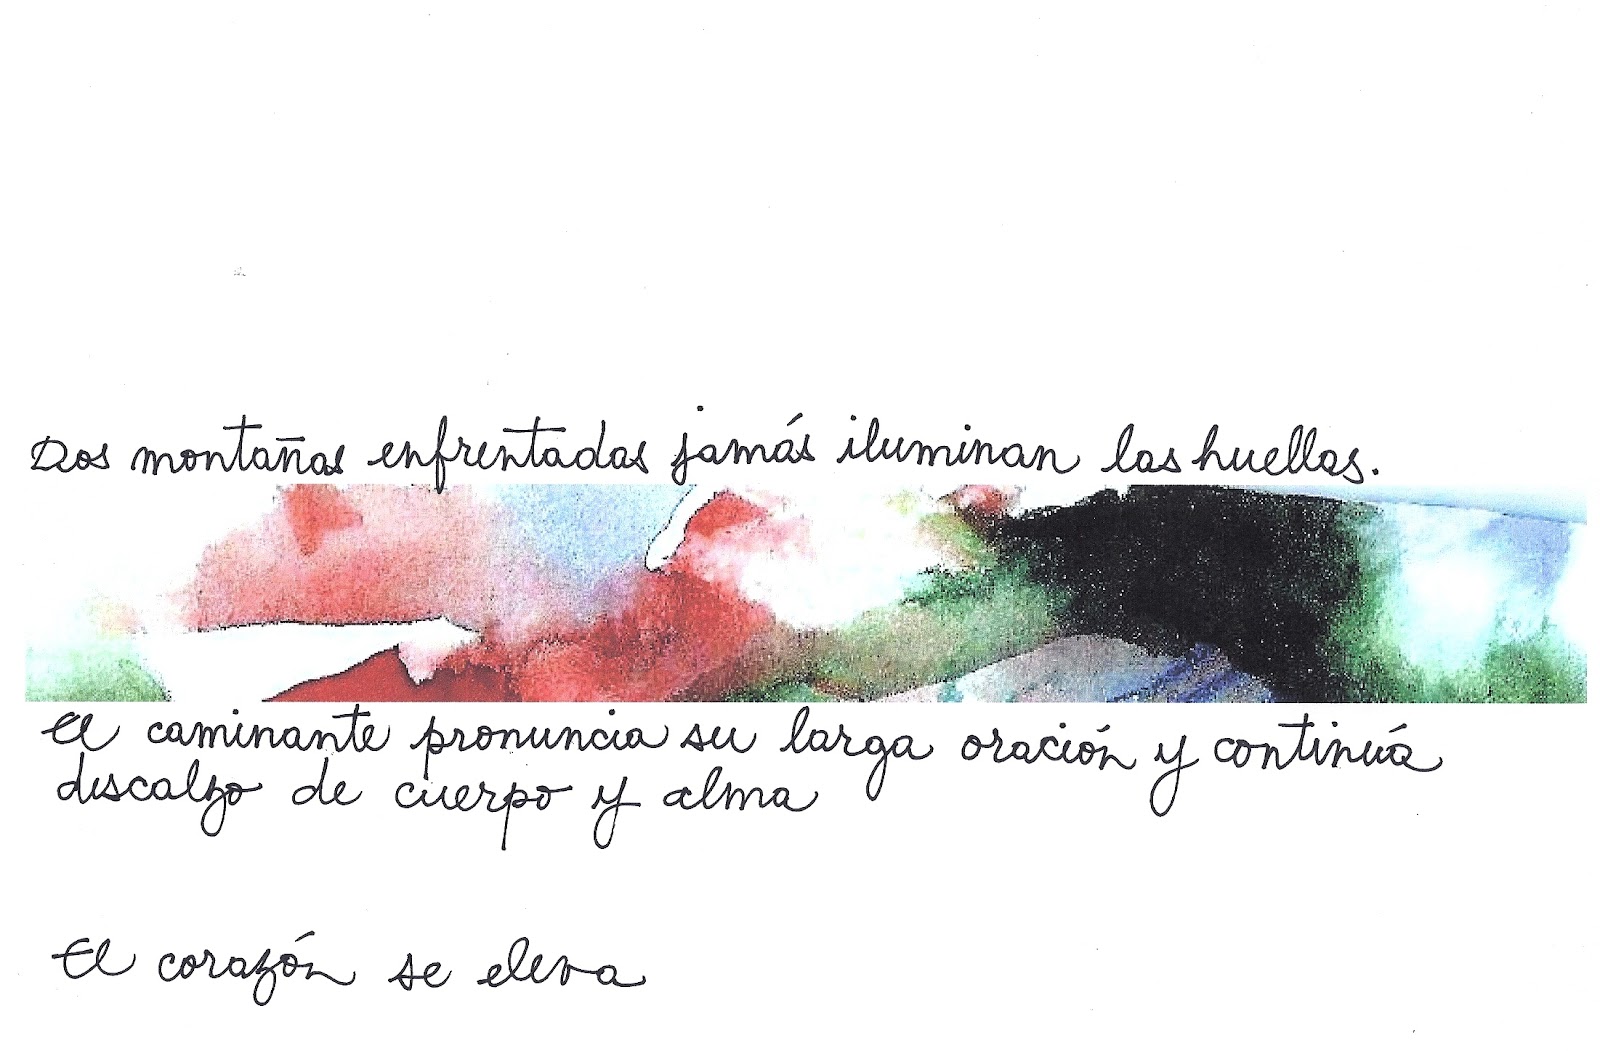 Dos montañas enfrentadas jamás iluminan las huellas.
El caminante pronuncia su larga oración y continúa
descalzo de cuerpo y alma
El corazón se eleva